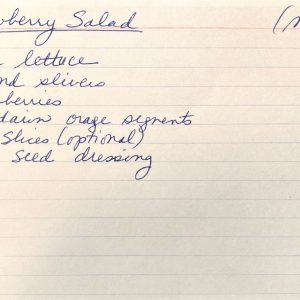 wberry Salad (n
lettuce
nd slivers
berries
darin orage segments
slices (optional)
seed dressing